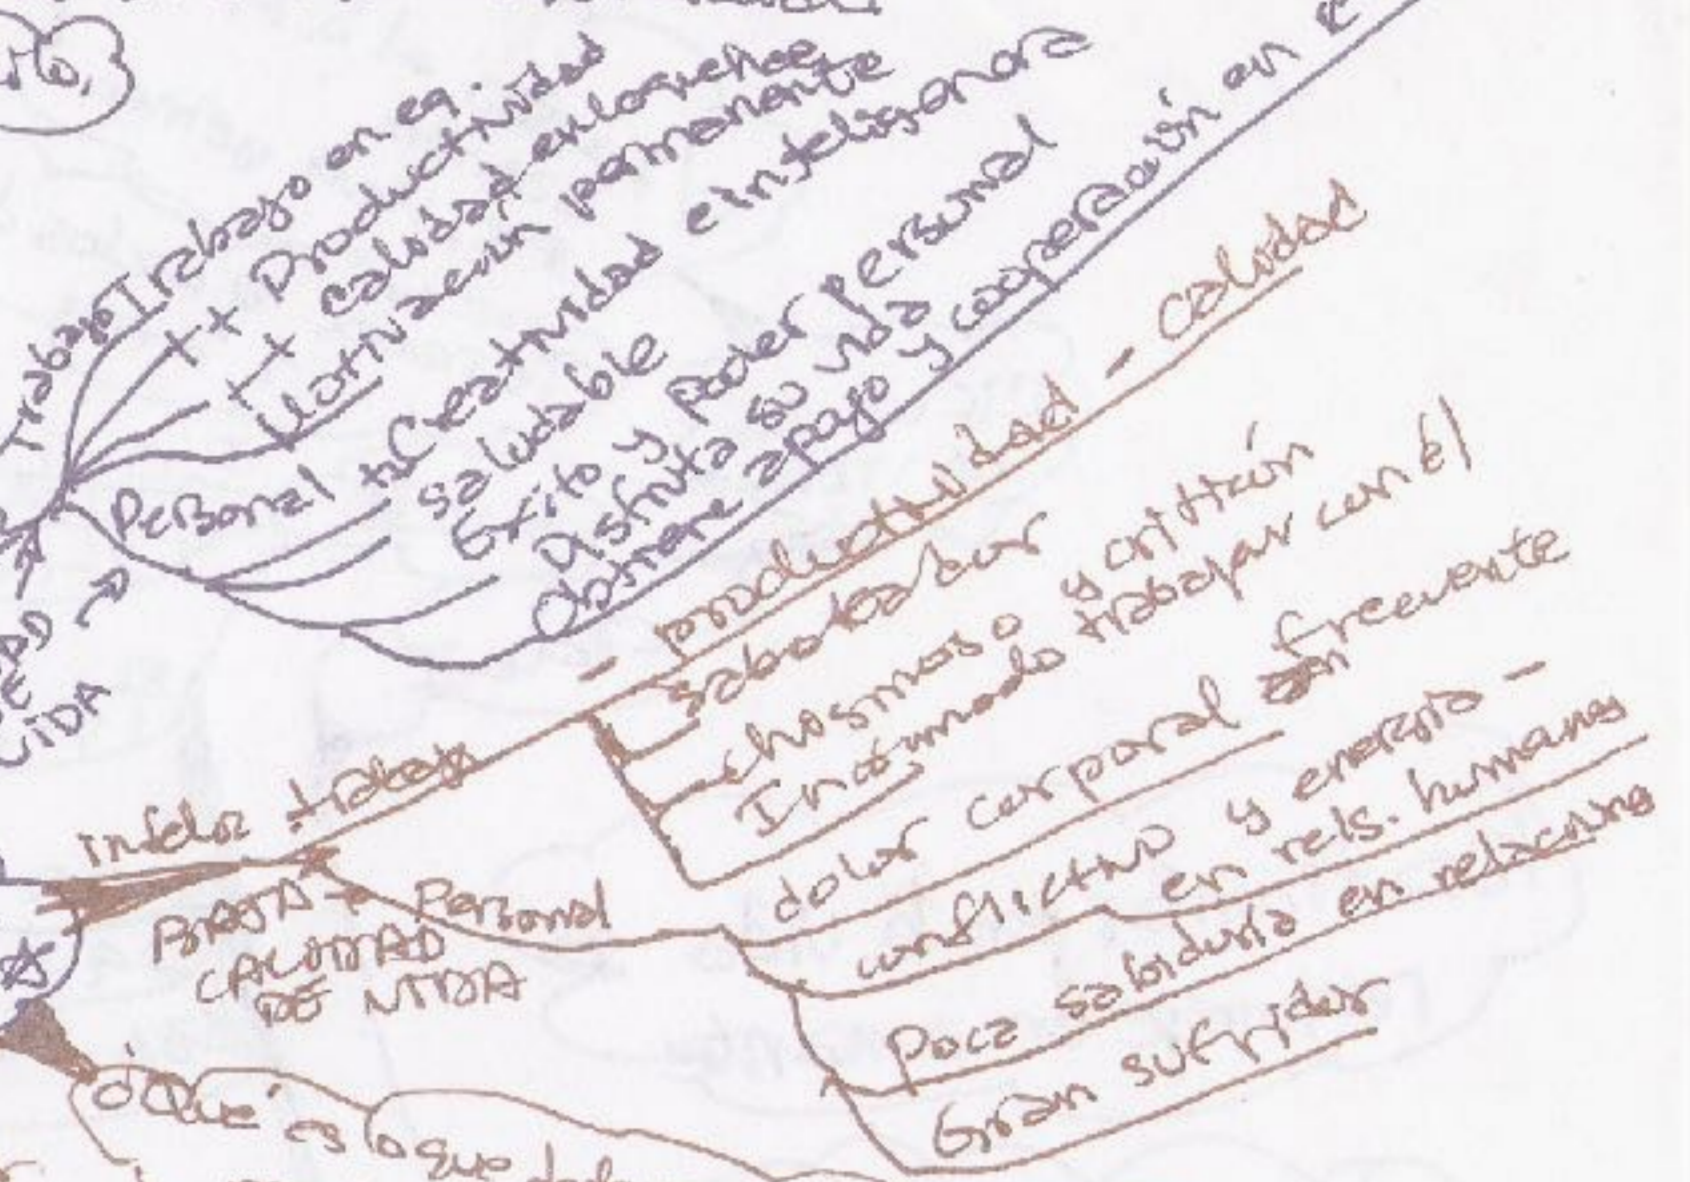 Trabajo
Trabajo en eq.
++ Productividad
++ calidad en lo que hace
Motivación permanente
Personal
++ Creatividad e inteligencia
saludable
Éxito y poder personal
Disfruta su vida
Obtiene apoyo y cooperación en
DE
VIDA
infeliz
trabajo
- productividad - calidad
saboteador
chosmoso y crittcón
Incómodo trabajar con él
BAJA
CALIDAD
DE VIDA
Personal
dolor corporal frecuente
conflictivo y energía -
en rels. humanas
Poca sabiduría en relaciones
Gran sufridor
¿Qué es lo que